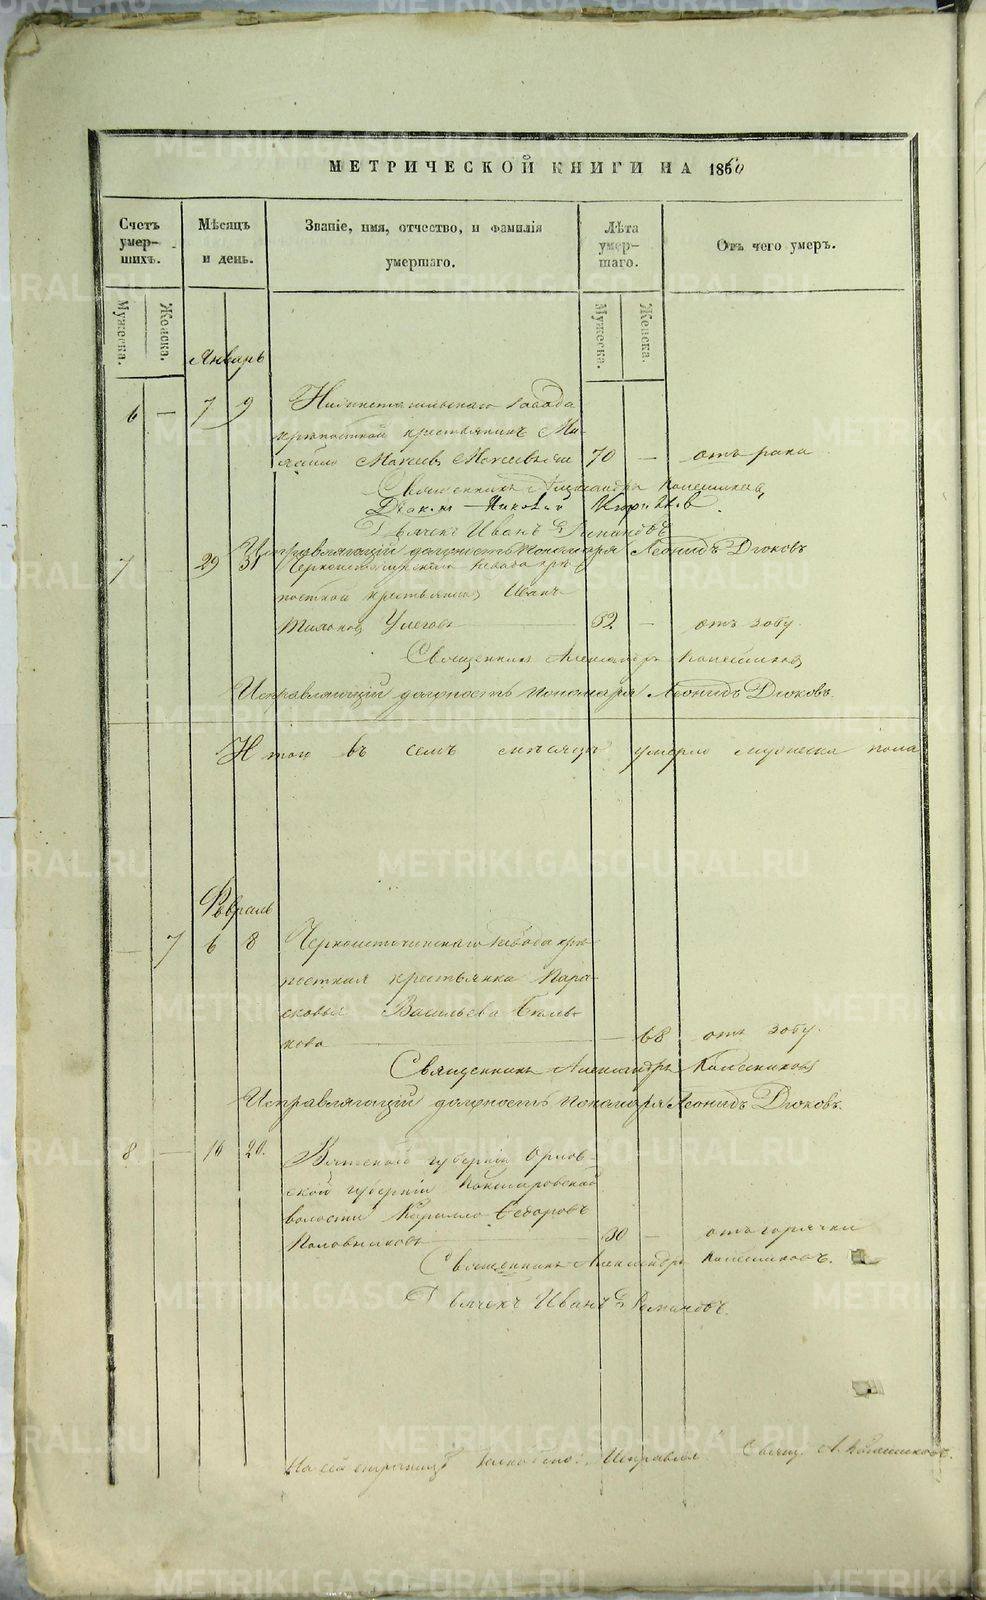 МЕТРИЧЕСКОЙ КНИГИ НА 1860
Счетъ умер-шихъ.
Мѣсяцъ и день.
Званіе, имя, отчество, и фамилія умершаго.
Лѣта умер-шаго.
Отъ чего умеръ.
Мужеска.
Женска.
Мужеска.
Женска.
Январь
6 — 7 9 завода
крѣпостной крестьянинъ Ми-
Мокеевъ 70 — отъ рака
Священникъ Александръ Колесниковъ
Діаконъ Николай
Дьячекъ Иванъ
Исправляющій должность пономаря Леонидъ Дюковъ
7 29 31 Черноисточинскаго завода крѣ-
постной крестьянинъ Иванъ
62 — отъ зобу.
Священникъ Александръ Колесниковъ
Исправляющій должность пономаря Леонидъ Дюковъ.
Итого въ семъ мѣсяцѣ умерло мужеска пола
Февраль
— 7 6 8 Черноисточинскаго завода крѣ-
постная крестьянка Пара-
сковья Васильева
кова — 68 отъ зобу.
Священникъ Александръ Колесниковъ
Исправляющій должность пономаря Леонидъ Дюковъ.
8 — 16 20. Вятской губерніи Орлов-
ской губерніи
волости Кирилло Ѳедоровъ
Половниковъ 30 — отъ горячки
Священникъ Александръ Колесниковъ.
Дьячекъ Иванъ
На сей страницѣ Исправлял Свящ. А. Колесниковъ.
METRIKI.GASO-URAL.RU